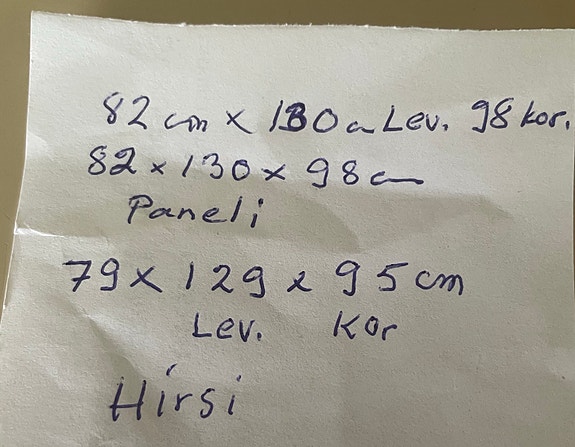 82 cm x 130 cm Lev. 98 kor.
82 x 130 x 98 cm
Paneli
79 x 129 x 95 cm
Lev. Kor
Hirsi